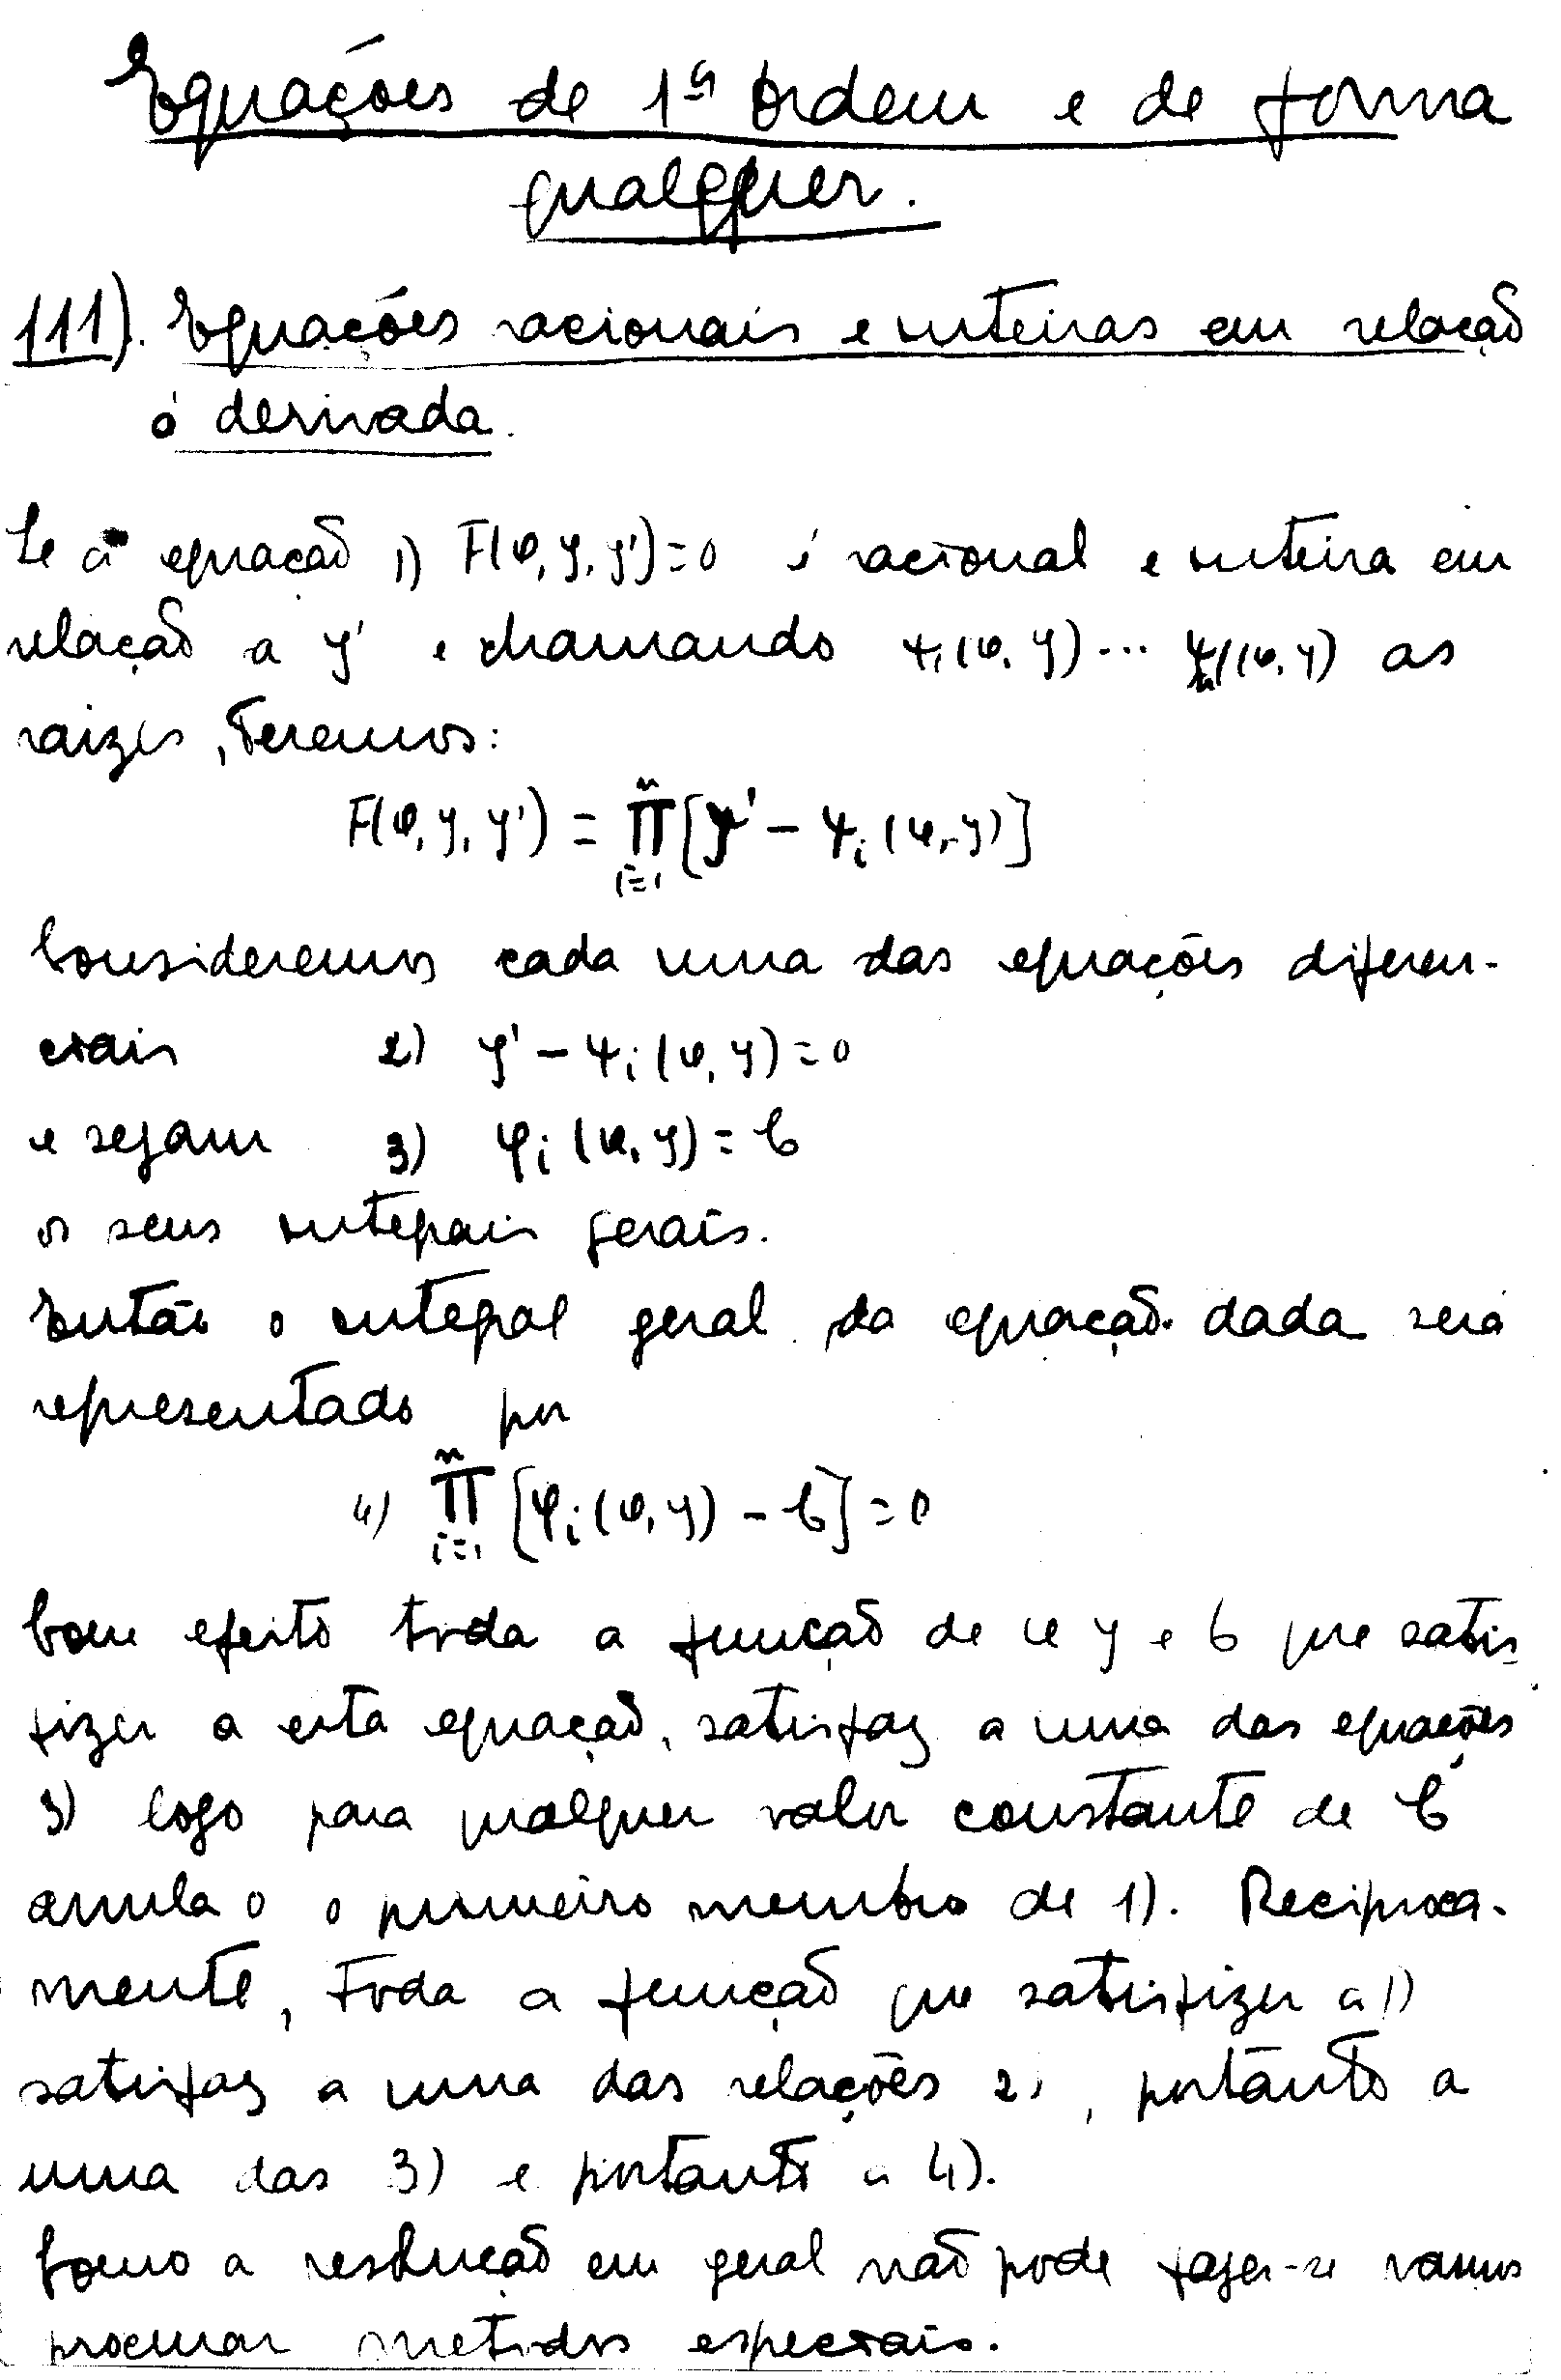 Equações de 1ª ordem e de forma
qualquer.
111). Equações racionais e inteiras em relação
à derivada.
Se a equação 1) F(x, y, y') = 0 é racional e inteira em
relação a y' e chamando ψ₁(x, y) ... ψₙ(x, y) as
raizes, teremos:
F(x, y, y') = ∏ⁿᵢ₌₁ [y' - ψᵢ(x, y)]
Consideremos cada uma das equações diferen-
ciais 2) y' - ψᵢ(x, y) = 0
e sejam 3) φᵢ(x, y) = C
os seus integrais gerais.
Então o integral geral da equação dada será
representado por
4) ∏ⁿᵢ₌₁ [φᵢ(x, y) - C] = 0
Com efeito toda a função de x y e C que satis-
fizer a esta equação, satisfaz a uma das equações
3) logo para qualquer valor constante de C
anula o o primeiro membro de 1). Reciproca-
mente, toda a função que satisfizer a 1)
satisfaz a uma das relações 2), portanto a
uma das 3) e portanto a 4).
Como a resolução em geral não pode fazer-se vamos
procurar metodos especiais.